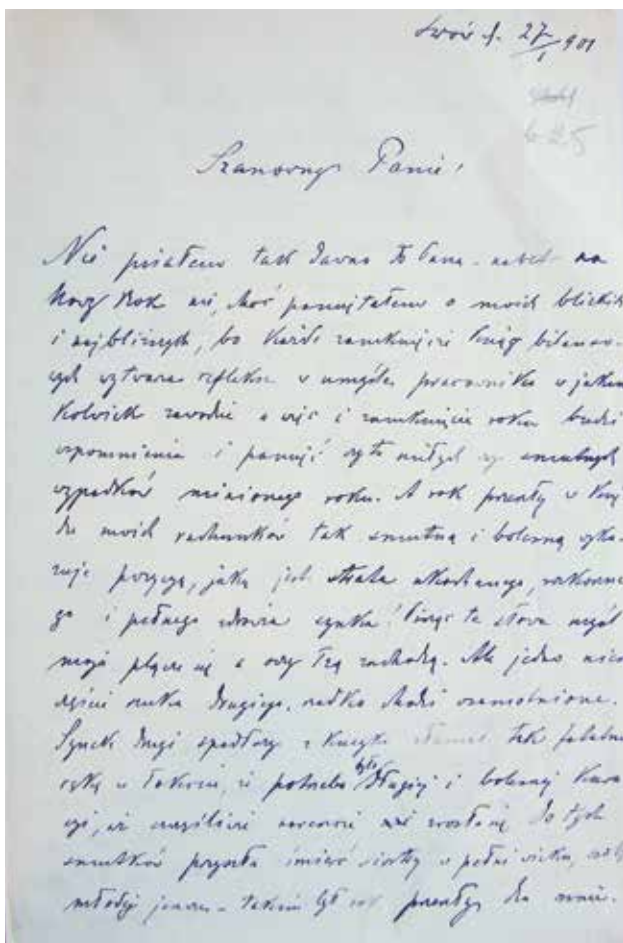 Lwów d. 27/1 901
625
Szanowny Panie!
Nie pisałem tak dawno do Pana - nawet na
Nowy Rok nie, choć pamiętałem o moich bliskich
i najbliższych, bo każde zamknięcie ksiąg bilanso-
wych wytwarza refleksje w umyśle pracownika w jakim
kolwiek zawodzie a więc i zamknięcie roku budzi
wspomnienia i pamięć czy to miłych czy smutnych
wypadków minionego roku. A rok przeszły w księ
dze moich rachunków tak smutną i bolesną wyka-
zuje pozycyę, jaką jest strata ukochanego, rozkoszne
go i pełnego zdrowia synka! Pisząc te słowa myśl
moja plącze się a oczy łzą zachodzą. Ale jedno nie
szczęście szuka drugiego, rzadko chodzi osamotnione.
Synek drugi spadłszy z kucyka złamał tak fatalnie
rękę w łokciu, iż potrzeba było długiej i bolesnej kura
cyi, iż
smutków przyszła śmierć siostry w pełni wieku,
młodej jeszcze - takim był rok przeszły dla mnie.